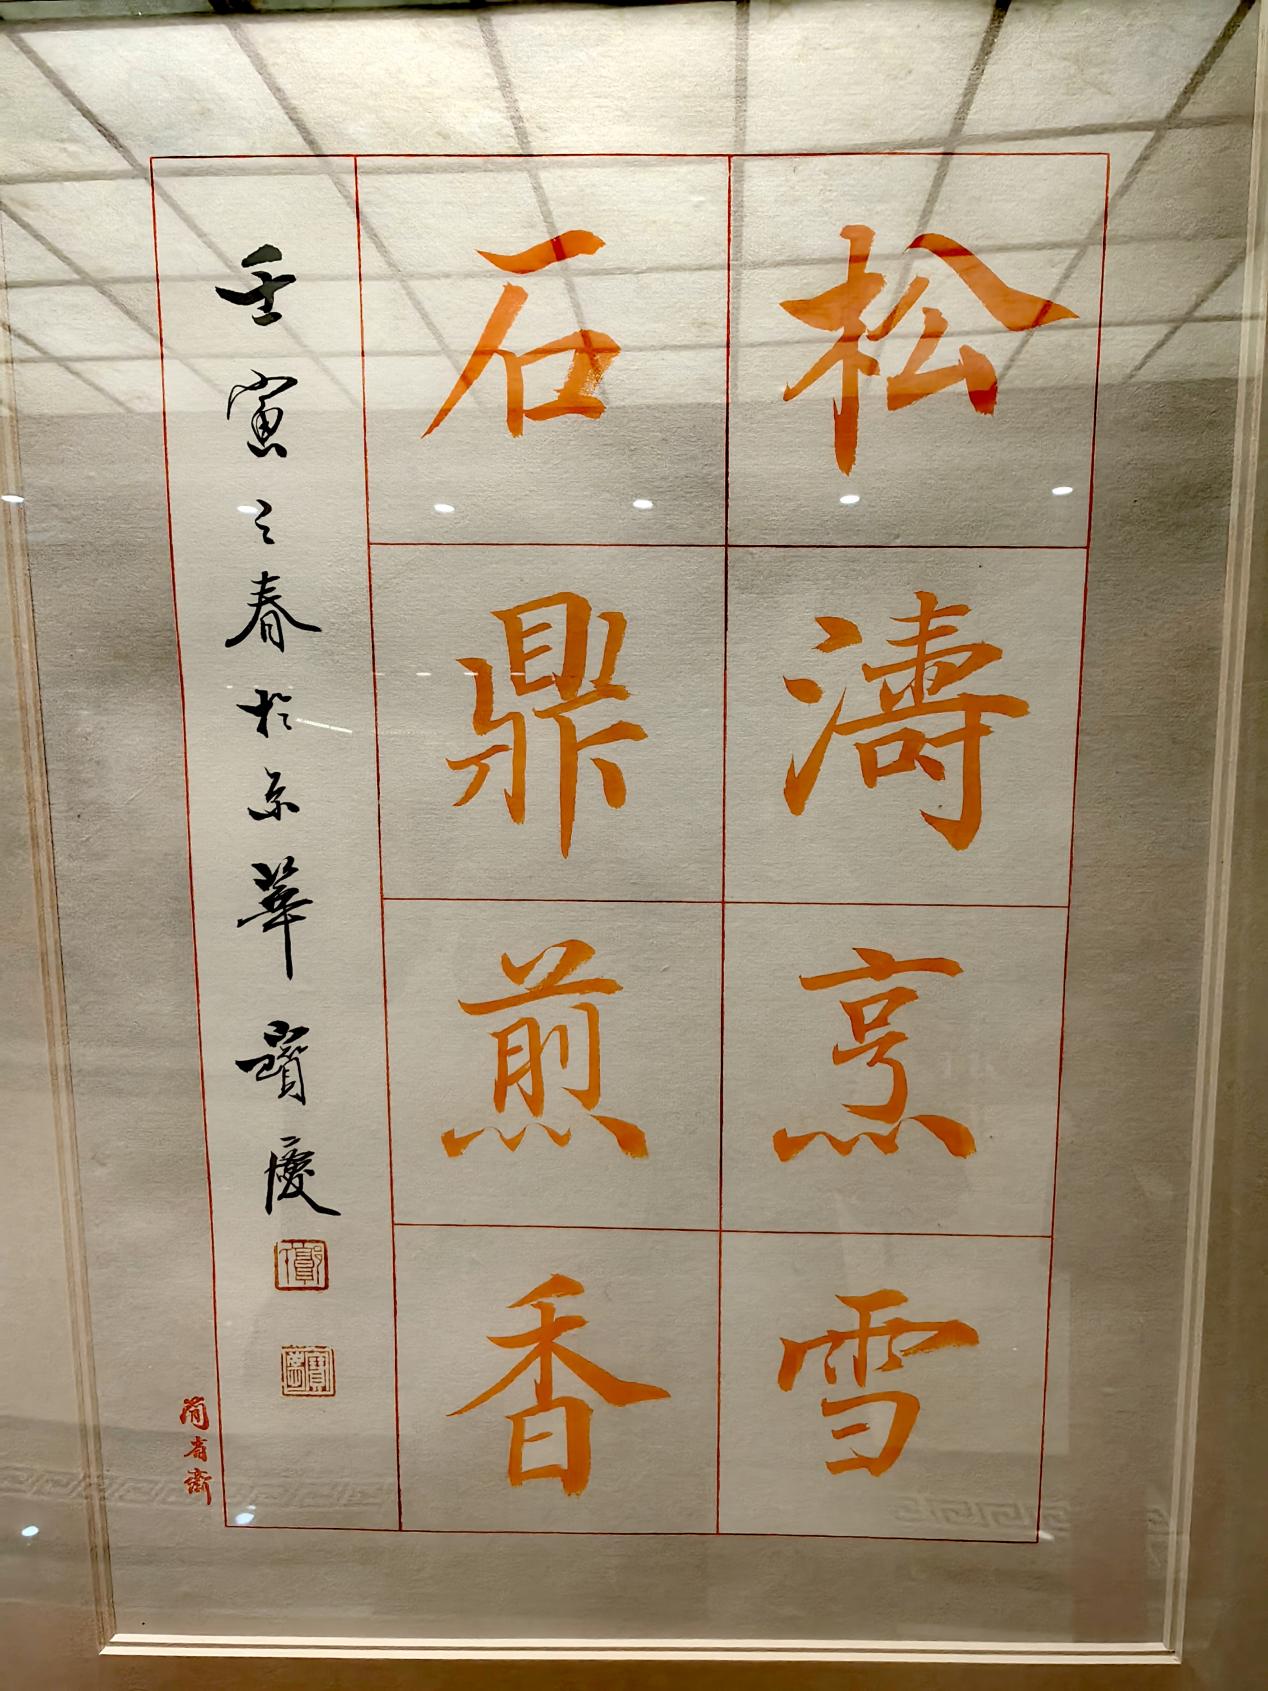 松濤烹雪
石鼎煎香
壬寅之春於京華寶慶
簡齋